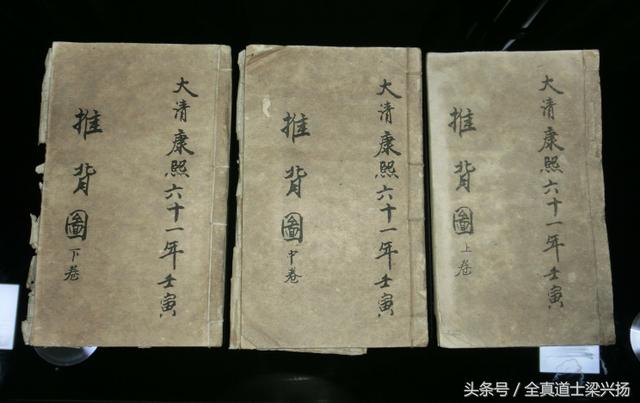 大清康熙六十一年壬寅
推背圖上卷
大清康熙六十一年壬寅
推背圖中卷
大清康熙六十一年壬寅
推背圖下卷
头条号 / 全真道士梁兴扬